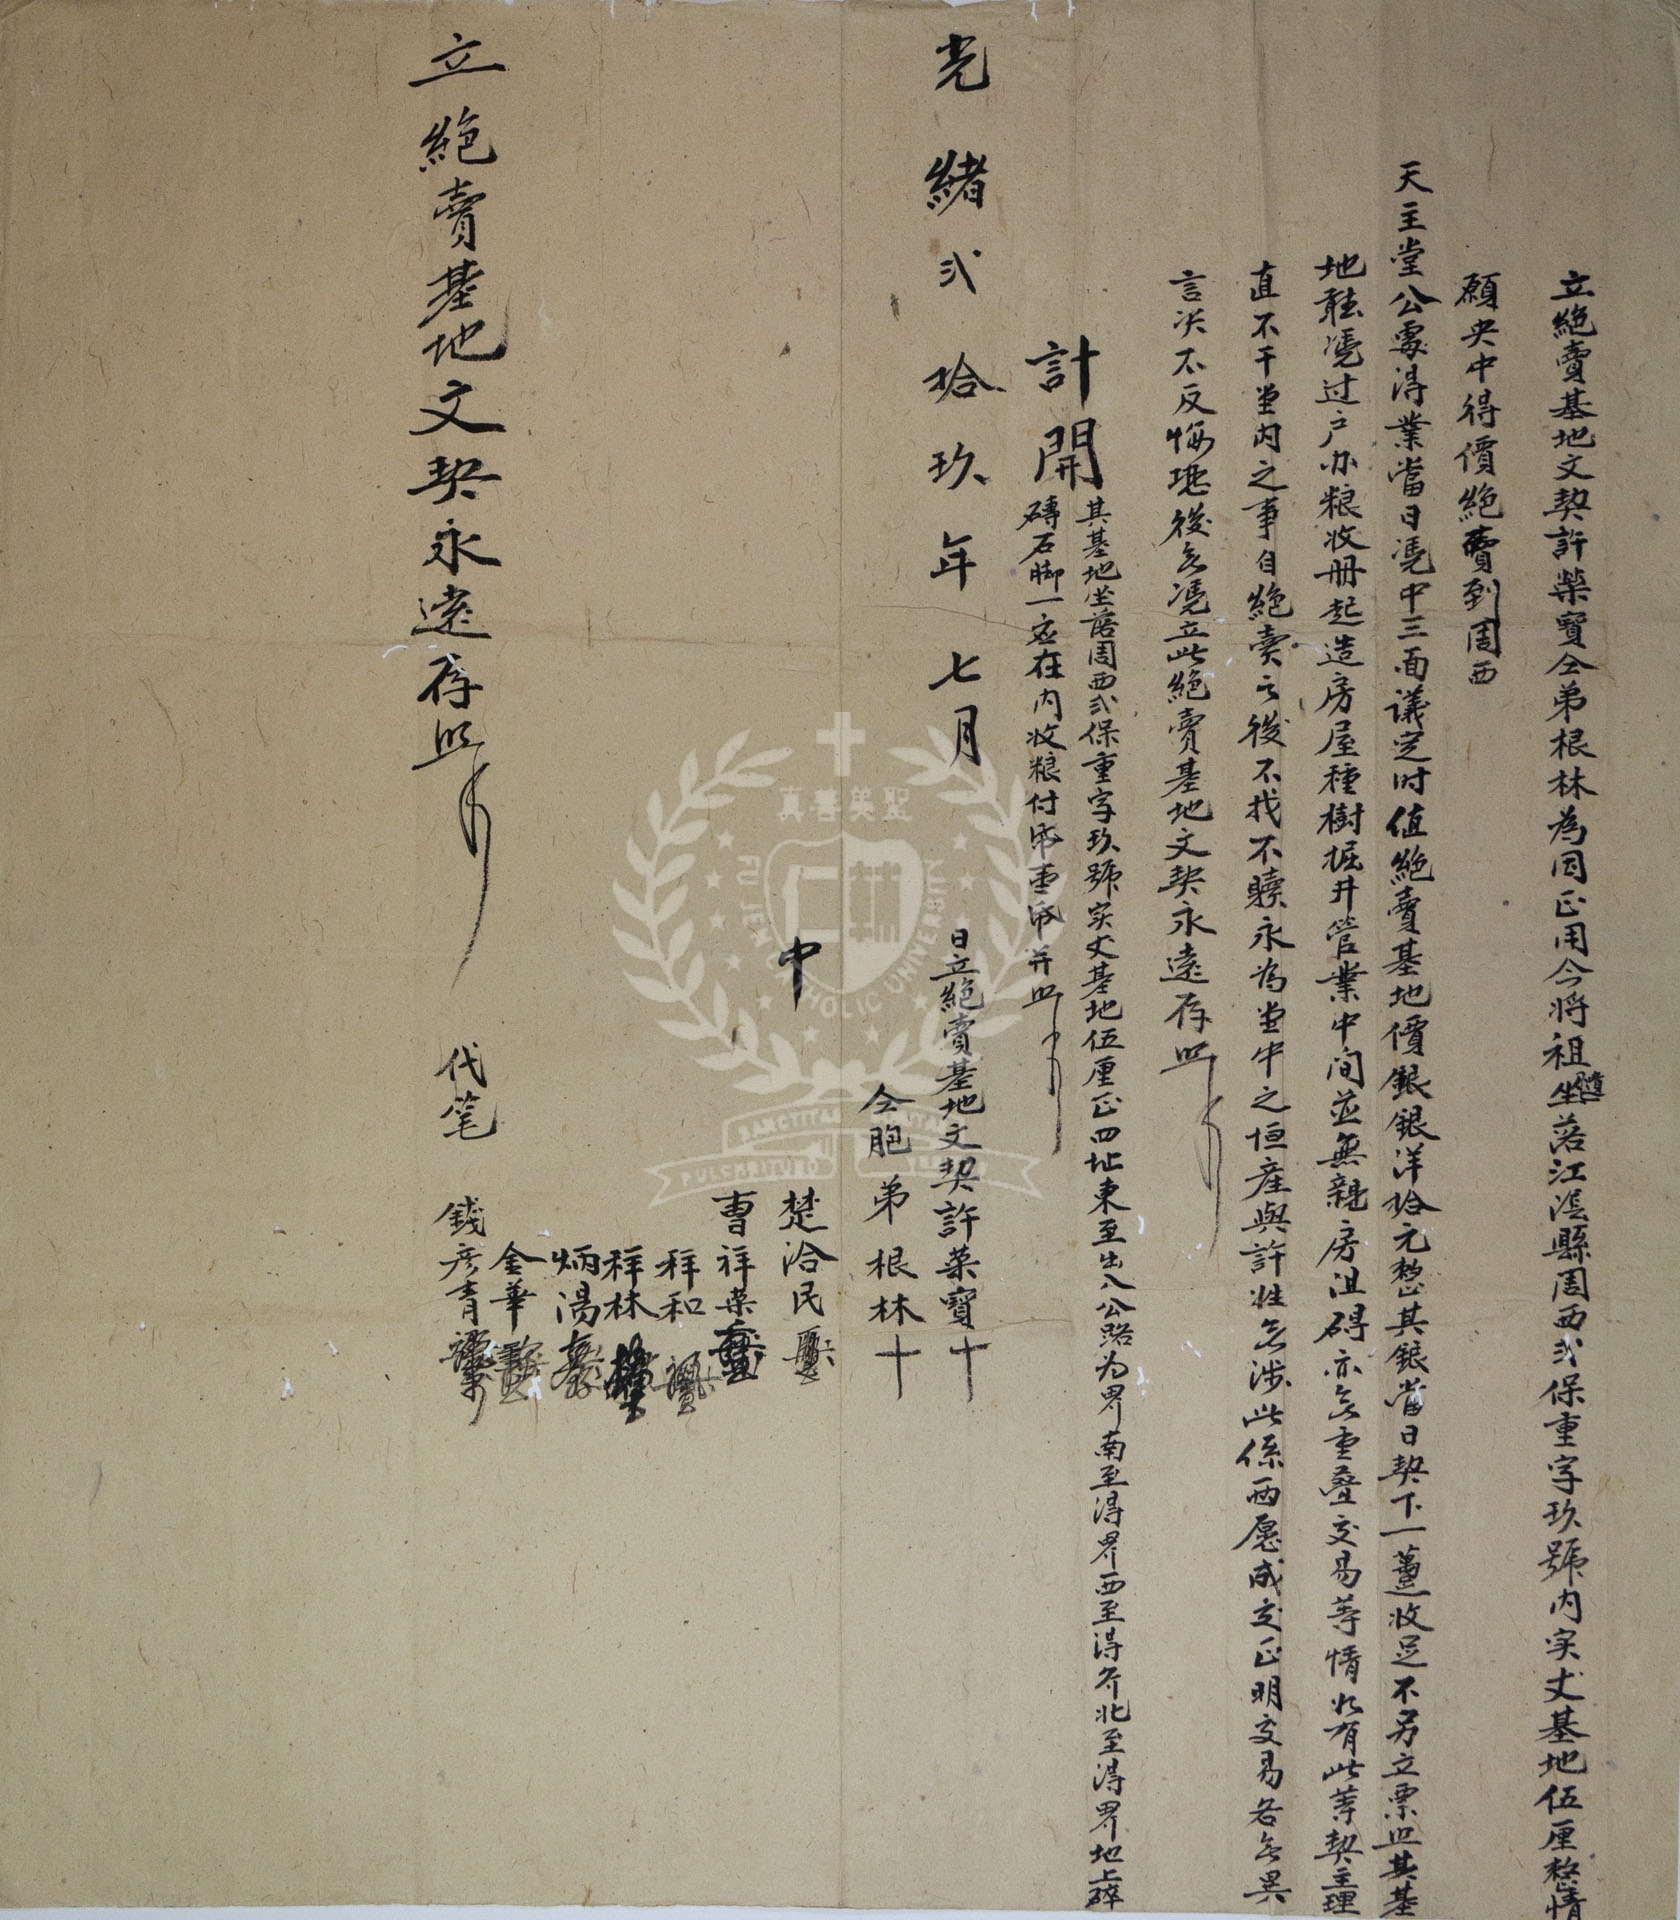 立絕賣基地文契許榮寶仝弟根林為因正用今將祖遺坐落江浸縣周西弍保重字玖號內实丈基地伍厘整情
願央中得價絕賣到周西
天主堂公處得業當日憑中三面議定时值絕賣基地價銀銀洋拾元整其銀當日契下一蕫收足不另立票㸃其基
地聽憑过户办粮收册起造房屋種樹掘井管業中间並無親房沮碍亦无重叠交易等情如有此等契主理
直不干堂內之事自絕賣之後不找不贖永為堂中之恒產與許姓无涉此係兩愿成交正明交易各无異
言决不反悔恐後无憑立此絕賣基地文契永遠存照
計開
其基地坐落周西弍保重字玖號实丈基地伍厘正四址東至出入公路为界南至得界西至得界北至得界地上碎
磚石脚一应在內收粮付串重串并照
光緒弍拾玖年七月 日立絕賣基地文契許榮寶十
仝胞弟根林十
中
楚洽民
曹祥荣
祥和
祥林
炳湯
金華
代笔 錢彦青
立絕賣基地文契永遠存照
真善美聖
FU JEN CATHOLIC UNIVERSITY
SANCTITAS BONITAS
PULCHRITUDO VERITAS